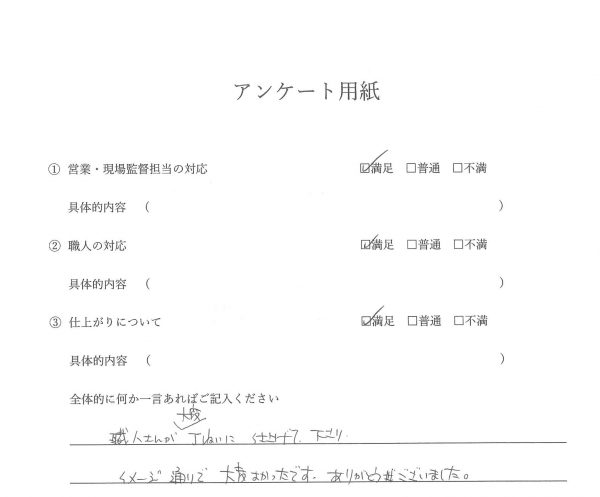 アンケート用紙
① 営業・現場監督担当の対応 ☑満足 □普通 □不満
具体的内容 ( )
② 職人の対応 ☑満足 □普通 □不満
具体的内容 ( )
③ 仕上がりについて ☑満足 □普通 □不満
具体的内容 ( )
全体的に何か一言あればご記入ください
大変
職人さんが 丁ねいに 仕上げて 下さり
イメージ通りで 大変よかったです。ありがとうございました。